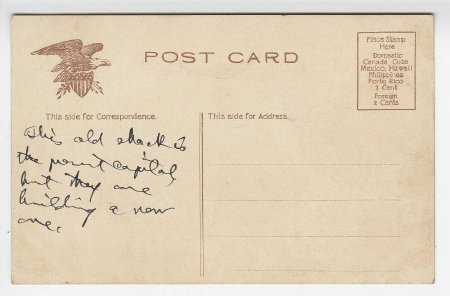 POST CARD
Place Stamp
Here
Domestic
Canada, Cuba
Mexico, Hawaii
Philippines
Porto Rico
1 Cent
Foreign
2 Cents
This side for Correspondence.
This side for Address.
This old shack is
the present Capital,
but they are
building a new
one.